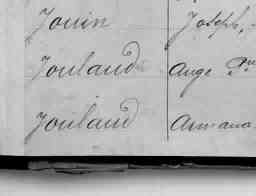 Jouin Joseph,
Joulaud Ange
Joulaud Armand